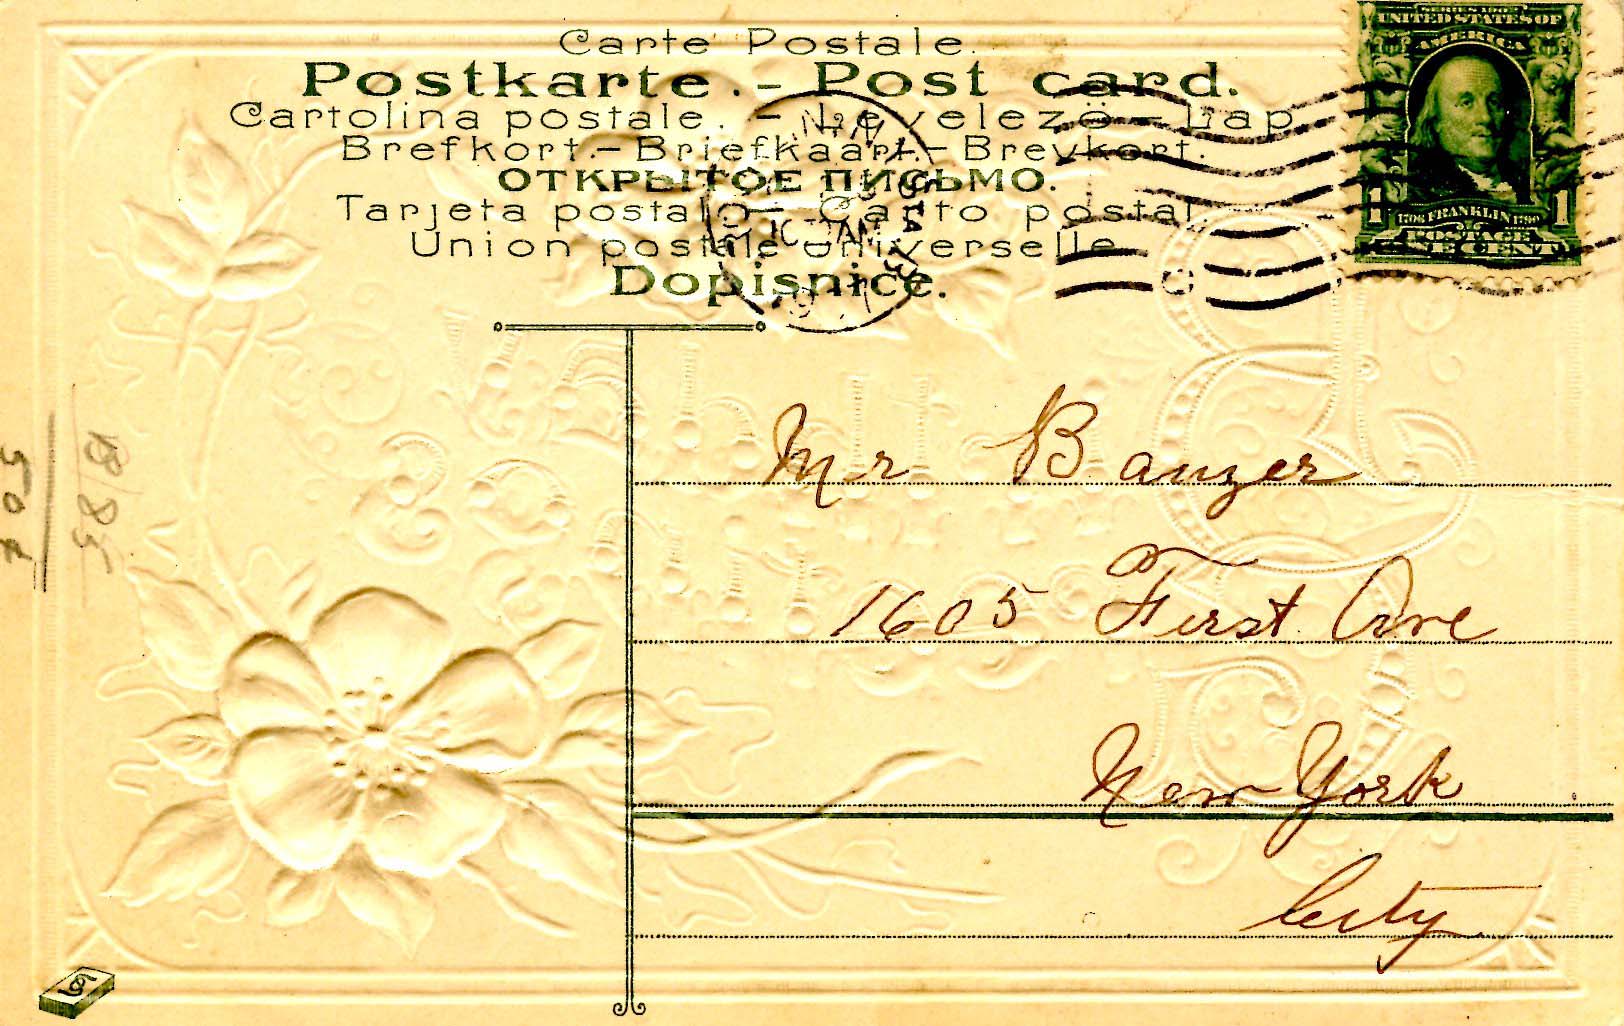 Carte Postale.
Postkarte. - Post card.
Cartolina postale. - Levelezö-Lap
Brefkort. - Briefkaart. - Brevkort.
ОТКРЫТОЕ ПИСЬМО.
Tarjeta postal - Carto postal.
Union postale universelle
Dopisnice.
UNITED STATES OF
AMERICA
1 1
FRANKLIN
POSTAGE
ONE CENT
Mr Banzer
1605 First Ave
New York
City
B/85
50¢